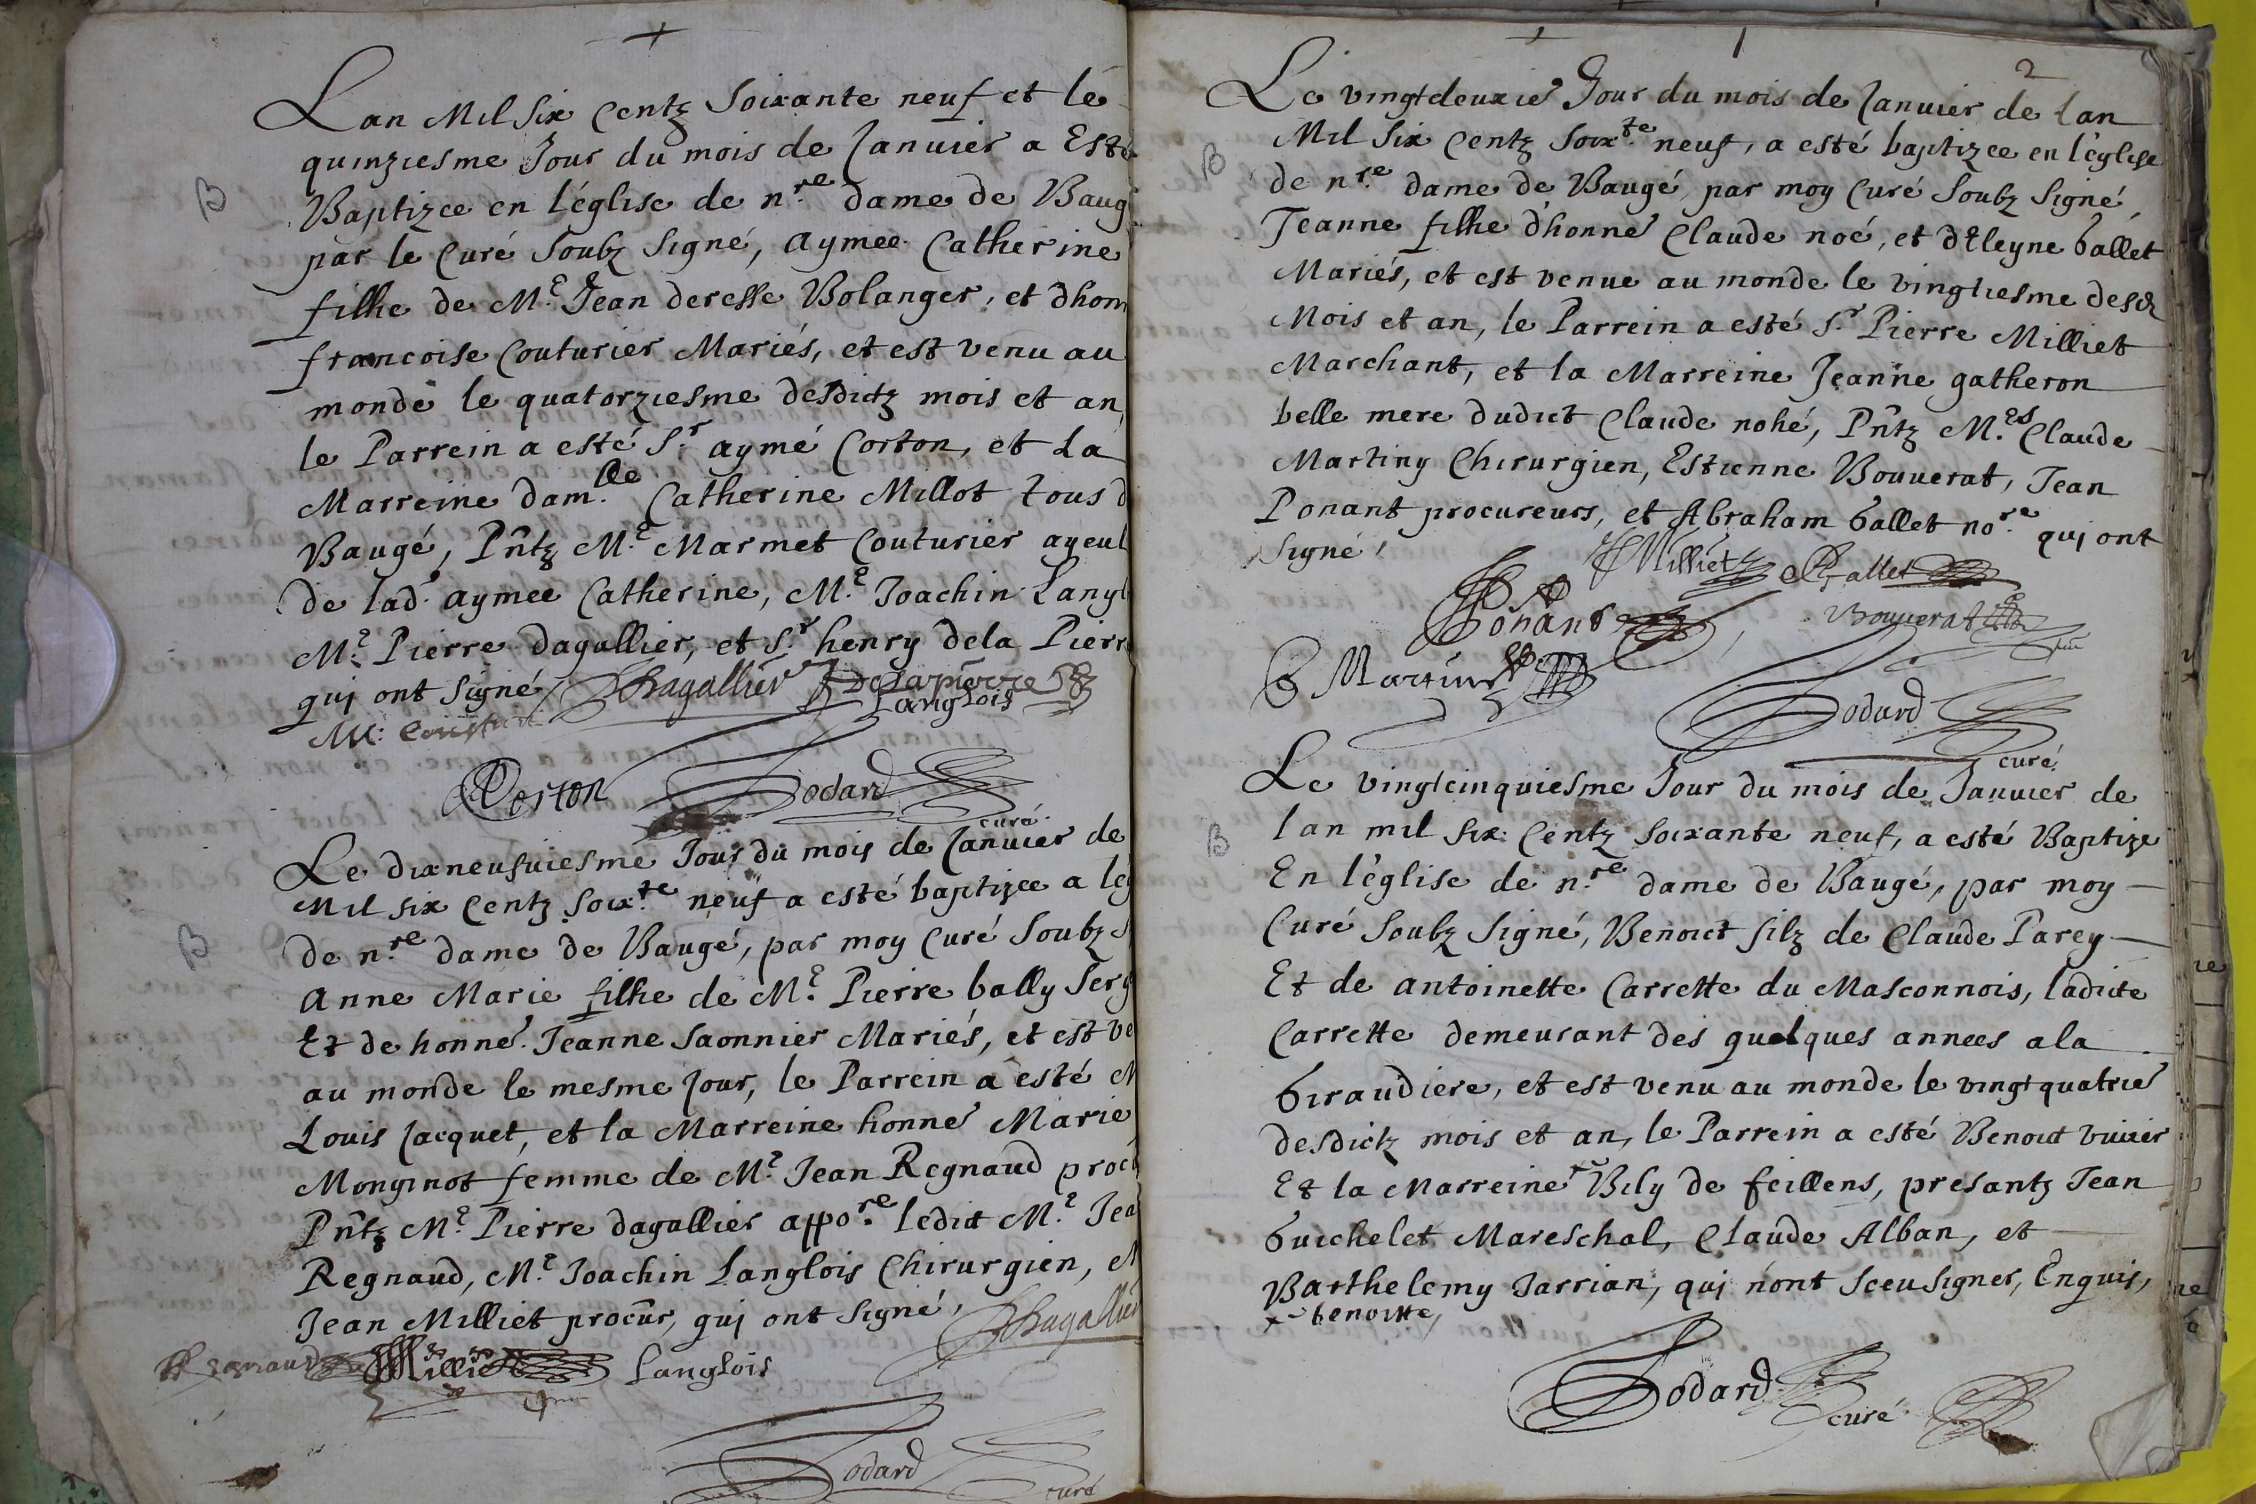 Lan Mil Six Centz Soixante neuf et le
quinziesme Jour du mois de Janvier a Esté
B
Baptizee en l'églisе de n.re dame de Baug
par le Curé Soubz Signé, aymee Catherine
filhe de M.e Jean deresse Bolanger, et dhon
francoise Couturier Mariés, et est venu au
monde le quatorziesme desdictz mois et an,
le Parrein a esté S.r aymé Corton, et La
Marreine dam.lle Catherine Millot tous d
Baugé, Pñtz M.e Marmet Couturier ayeul
de lad. aymee Catherine, M.e Joachin Langl
M.e Pierre dagallier, et S.r henry dela Pierr
qui ont signé Dagallier Delapierre
Langlois
M.
Corton Godard
curé
Le dixneufviesme Jour du mois de Janvier de
Mil six Centz soix.te neuf a esté baptizee a lég
B
de n.re dame de Baugé, par moy Curé Soubz S
Anne Marie filhe de M.e Pierre bally Serg
Et de honne. Jeanne Saonnier Mariés, et est ve
au monde le mesme Jour, le Parrein a esté M
Louis Jacquet, et la Marreine honne Marie
Monginot femme de M.e Jean Regnaud proc
Pñtz M.e Pierre dagallier appo.re ledict M.e Jea
Regnaud, M.e Joachin Langlois Chirurgien, M
Jean Milliet procũr, qui ont signé,
Dagallier
Regnaud Milliet Langlois
Godard
curé
2
Le vingtdeuxie Jour du mois de Janvier de lan
Mil Six Centz Soix.te neuf, a esté baptizee en l'églisе
B
de n.re dame de Baugé, par moy Curé Soubz Signé,
Jeanne filhe d'honne Claude noé, et d'Eleyne ballet
Mariés, et est venue au monde le vingtiesme desd
Mois et an, le Parrein a esté S.r Pierre Milliet
Marchant, et la Marreine Jeanne gatheron
belle mere dudict Claude nohé, Pñtz M.es Claude
Martiny Chirurgien, Estienne Bouverat, Jean
Ponant procureurs, et Abraham ballet no.re qui ont
Signé,
Milliet Ballet
Ponant Bouverat
Martiny
Godard
curé
Le vingtcinquiesme Jour du mois de Janvier de
lan mil six Centz soixante neuf, a esté Baptize
B
En l'églisе de n.re dame de Baugé, par moy
Curé Soubz Signé, Benoict filz de Claude Parey
Et de antoinette Carrette du Masconnois, ladicte
Carrette demeurant des quelques annees a la
Giraudiere, et est venu au monde le vingtquatrie
desdictz mois et an, le Parrein a esté Benoict vivier
Et la Marreine Bily de feillens, presantz Jean
Guichelet Mareschal, Claude Alban, et
Barthelemy Jarrian, qui n'ont sceu signer, Enquis,
x benoitte,
Godard
curé